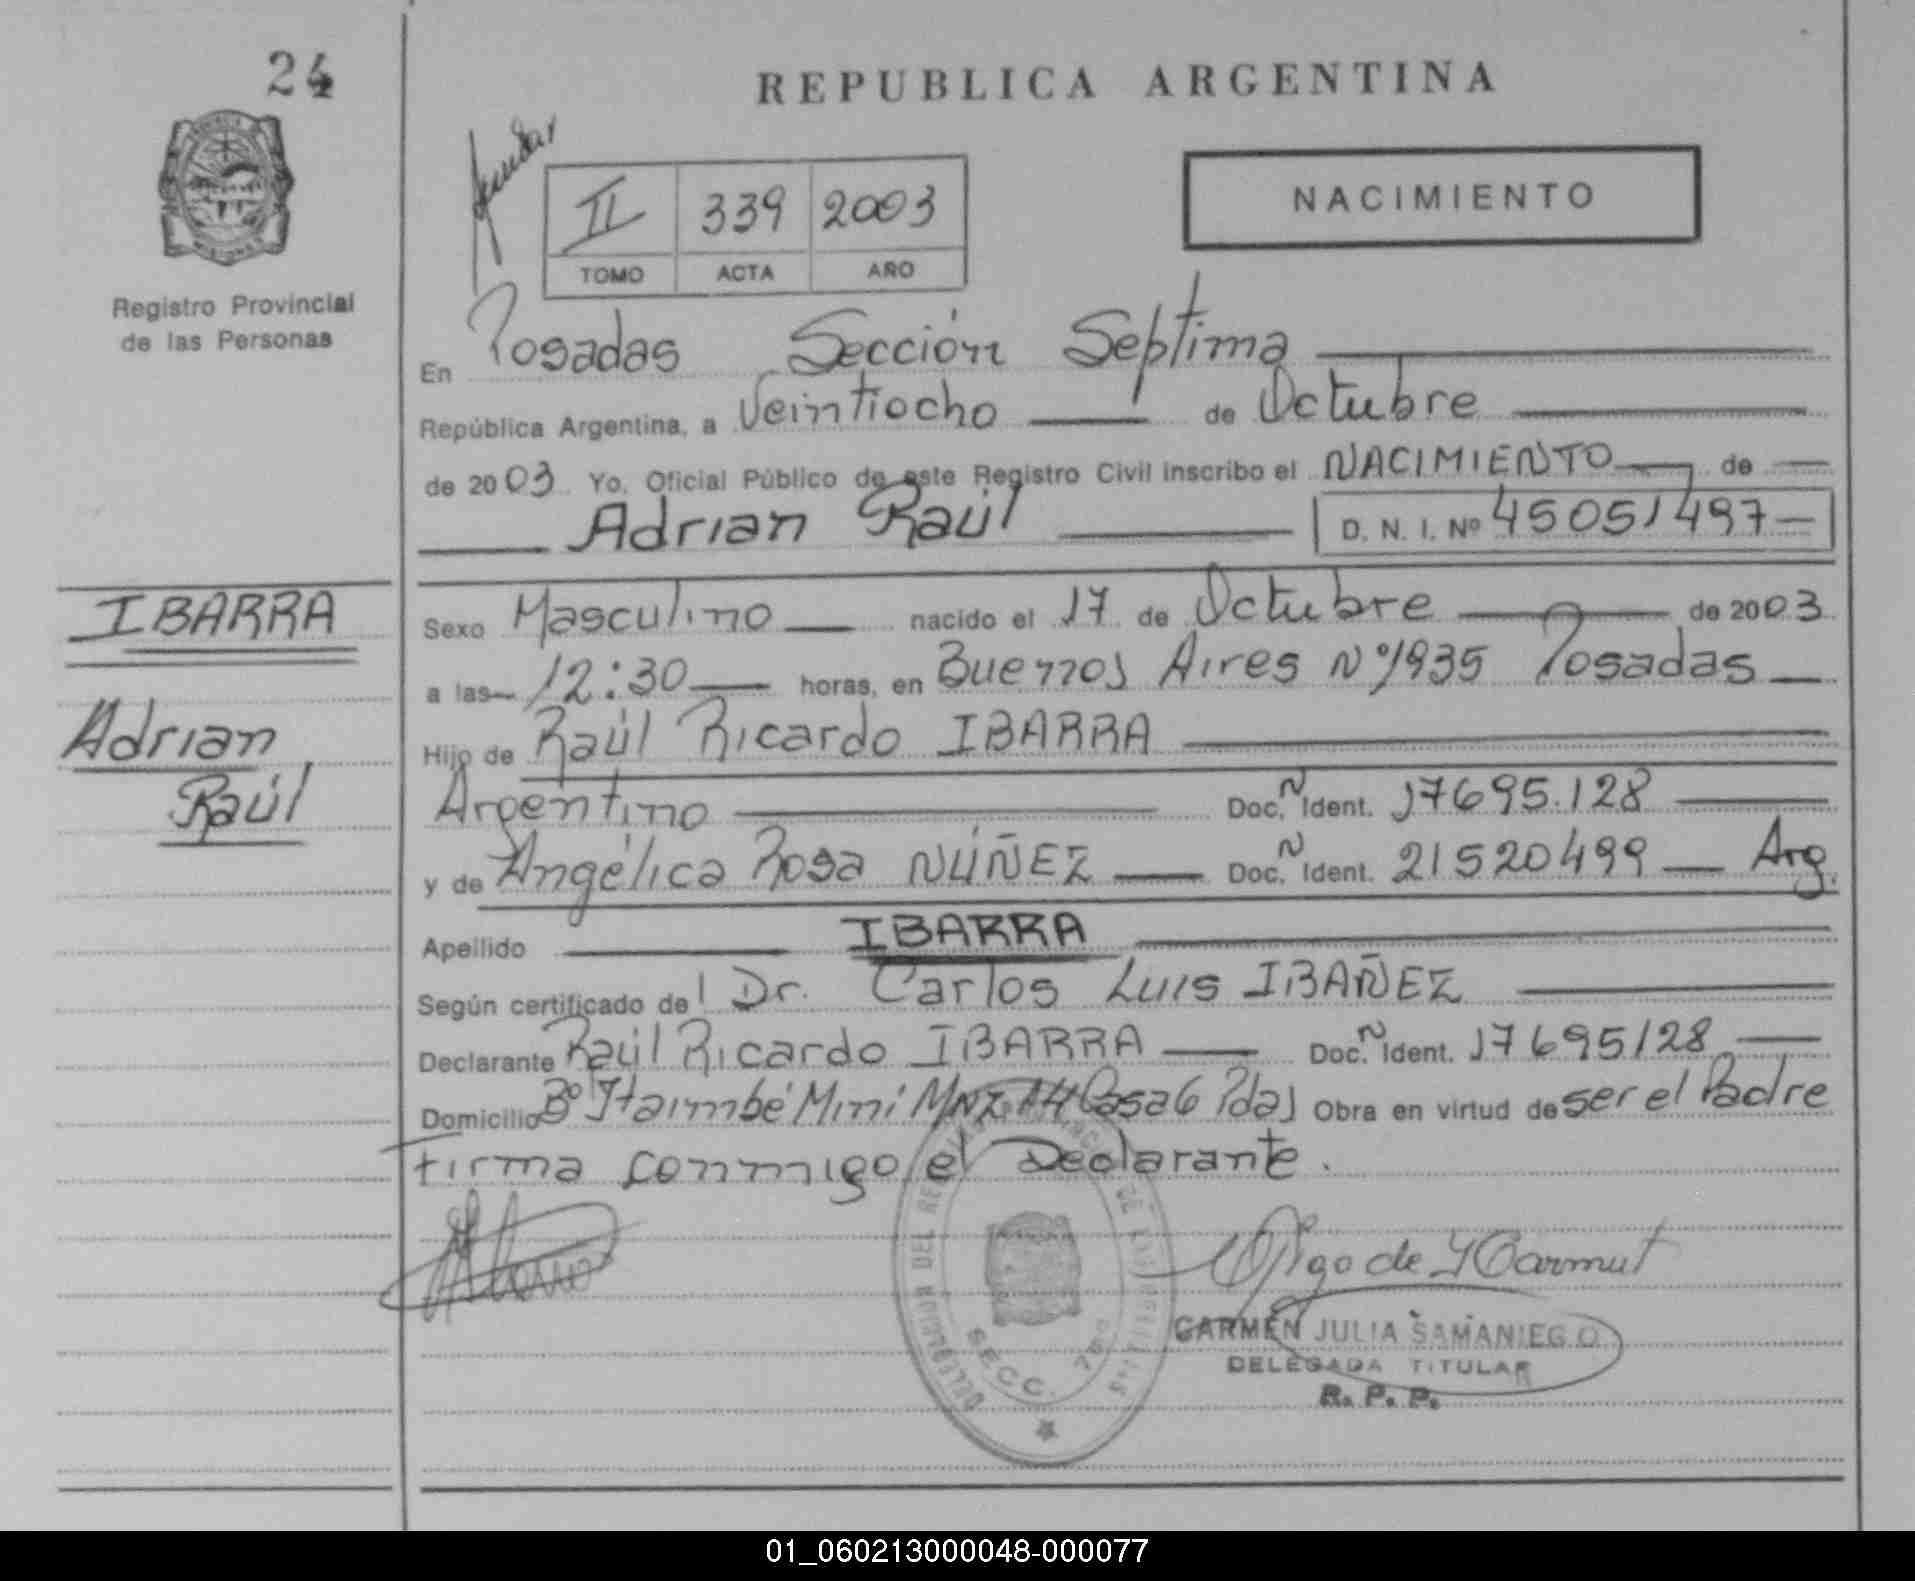 24
REPUBLICA ARGENTINA
NACIMIENTO
II 339 2003
TOMO ACTA AÑO
Registro Provincial
de las Personas
En Posadas Sección Septima
República Argentina, a Veintiocho de Octubre
de 2003 Yo, Oficial Público de este Registro Civil inscribo el NACIMIENTO de
Adrian Raúl D. N. I. Nº 45051497
IBARRA
Adrian
Raúl
Sexo Masculino nacido el 17 de Octubre de 2003
a las 12:30 horas, en Buenos Aires Nº 1935 Posadas
Hijo de Raúl Ricardo IBARRA
Argentino Doc. N Ident. 17695.128
y de Angélica Rosa NÚÑEZ Doc. N Ident. 21520499 Arg.
Apellido IBARRA
Según certificado del Dr. Carlos Luis IBAÑEZ
Declarante Raúl Ricardo IBARRA Doc. N Ident. 17695128
Domicilio Bº Itaimbé Miní MNZ 14 Casa 6 Pdas Obra en virtud de ser el Padre
Firma conmigo el Declarante.
DELEGACION DEL SECC. 7
CARMEN JULIA SAMANIEGO
DELEGADA TITULAR
R. P. P.
01_060213000048-000077